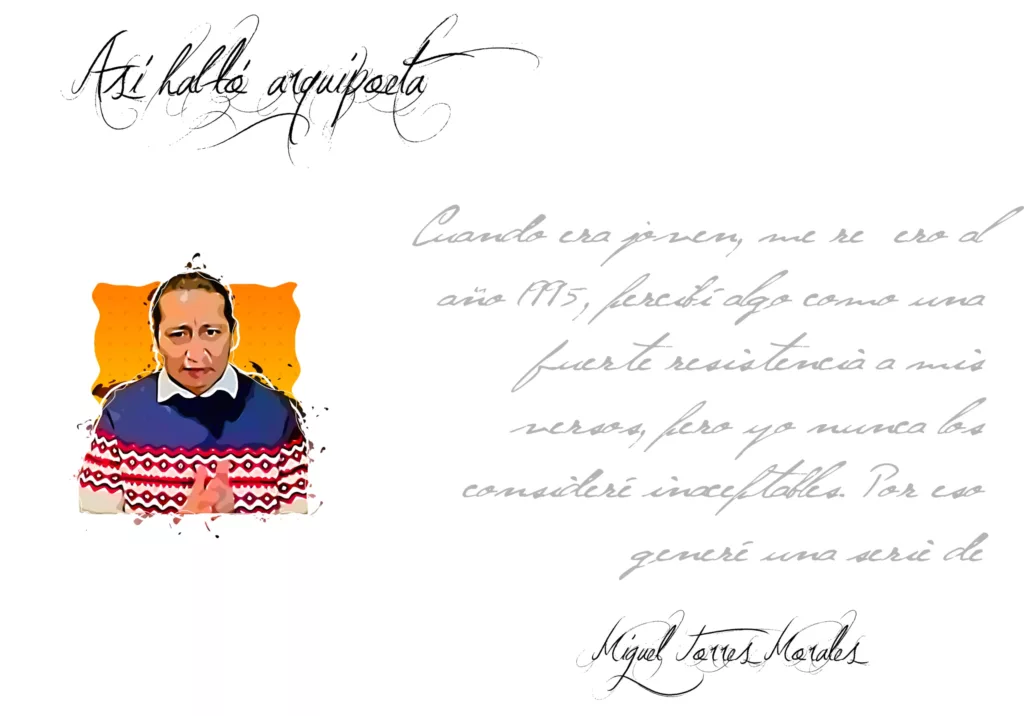 Así halló arquipoeta
Cuando era joven, me re ero al
año 1995, percibí algo como una
fuerte resistencia a mis
versos, pero yo nunca los
consideré inaceptables. Por eso
generé una serie de
Miguel Torres Morales